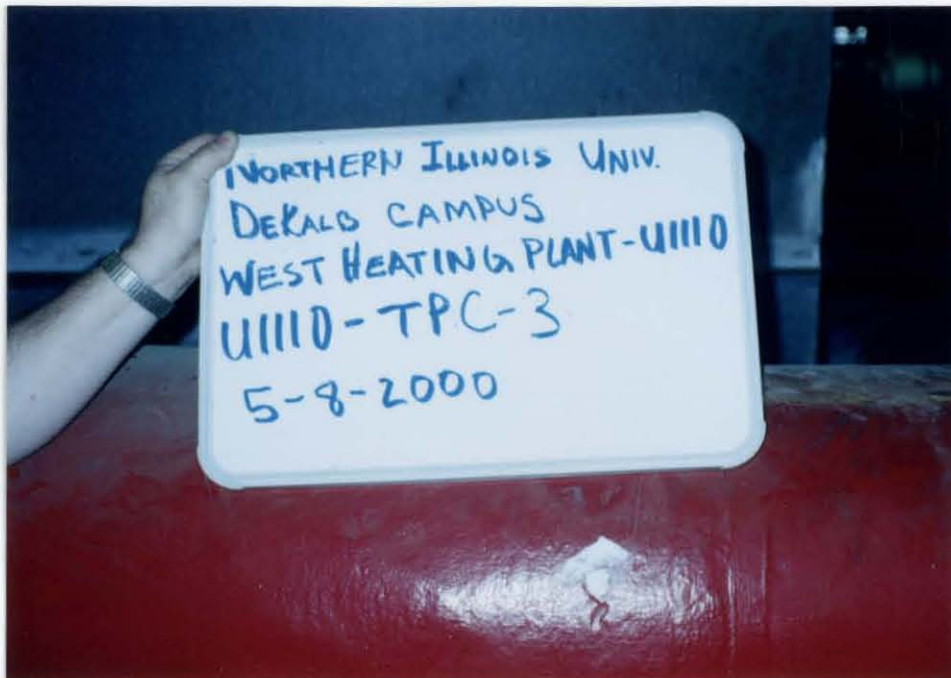 NORTHERN ILLINOIS UNIV.
DEKALB CAMPUS
WEST HEATING PLANT-U1110
U1110-TPC-3
5-8-2000